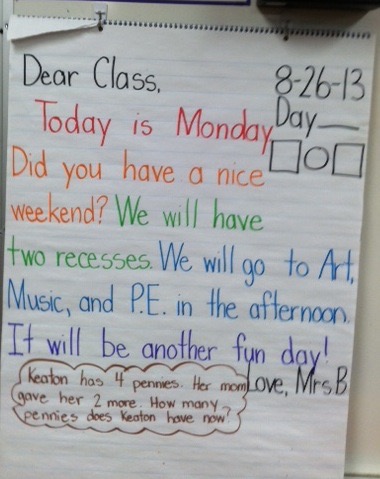 Dear Class,
8-26-13
Day
Today is Monday
Did you have a nice
weekend? We will have
two recesses. We will go to Art,
Music, and P.E. in the afternoon.
It will be another fun day!
Love, Mrs. B
Keaton has 4 pennies. Her mom
gave her 2 more. How many
pennies does Keaton have now?